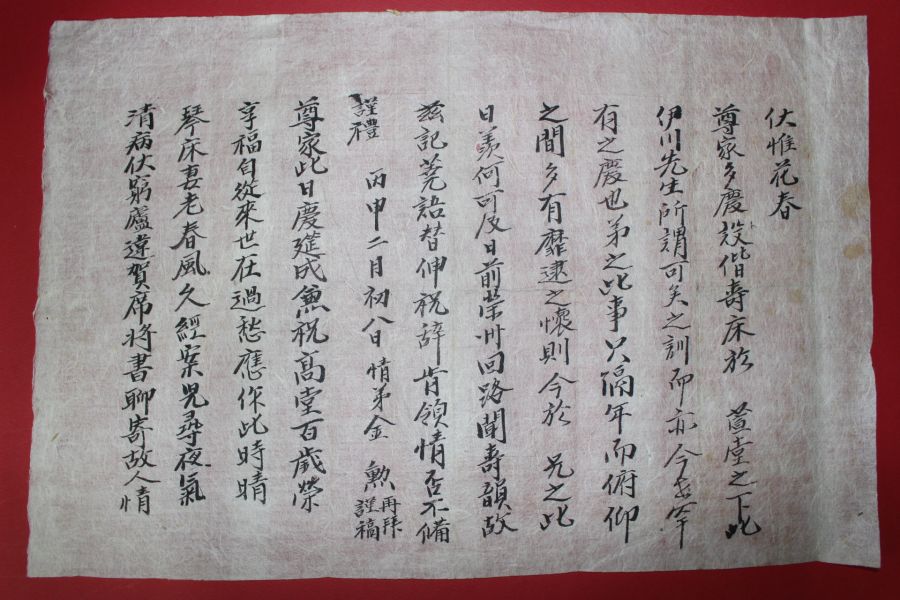 伏惟花春
尊家多慶設偕壽床於 萱堂之下此
伊川先生所謂可矣之訓而亦今世罕
有之慶也弟之此事只隔年而俯仰
之間多有靡逮之懷則今於 兄之此
日羡何可及日前榮州回路聞壽韻故
玆記蕘語替伸祝辞肯領情否不備
謹禮 丙申二月初八日情弟金 勲 再拜謹稿
尊家此日慶筵成兼祝高堂百歲榮
享福自從來世在過愁應作此時晴
琴床妻老春風久經案兒尋夜氣
清病伏窮廬違賀席將書聊寄故人情